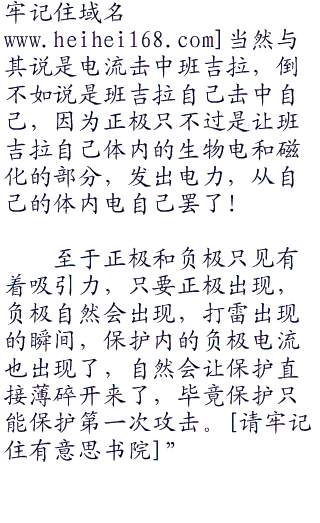 牢记住域名
www.heihei168.com]当然与
其说是电流击中班吉拉，倒
不如说是班吉拉自己击中自
己，因为正极只不过是让班
吉拉自己体内的生物电和磁
化的部分，发出电力，从自
己的体内电自己罢了！
至于正极和负极只见有
着吸引力，只要正极出现，
负极自然会出现，打雷出现
的瞬间，保护内的负极电流
也出现了，自然会让保护直
接薄碎开来了，毕竟保护只
能保护第一次攻击。[请牢记
住有意思书院]”